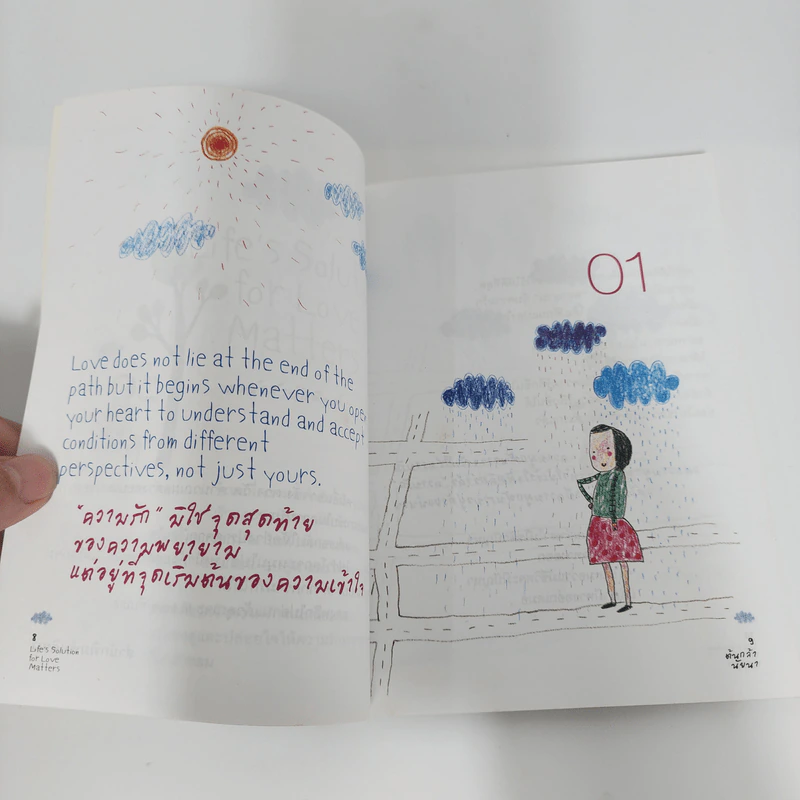 Love does not lie at the end of the
path but it begins whenever you open
your heart to understand and accept
conditions from different
perspectives, not just yours.
"ความรัก" มิใช่จุดสุดท้าย
ของความพยายาม
แต่อยู่ที่จุดเริ่มต้นของความเข้าใจ
8
Life's Solution
for Love
Matters
01
9
ต้นกล้า
นัยนา